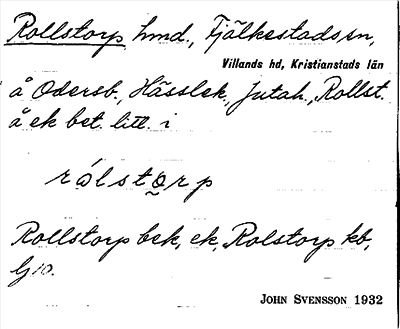 Rollstorp, hmd., Fjälkestads sn,
Villands hd, Kristianstads län
å Odersb., Hässlek., Jutah., Rollst.
å ek bet. litt. i
rálstọrp
Rollstorp bek, ek, Rolstorp kb,
Gjo.
JOHN SVENSSON 1932